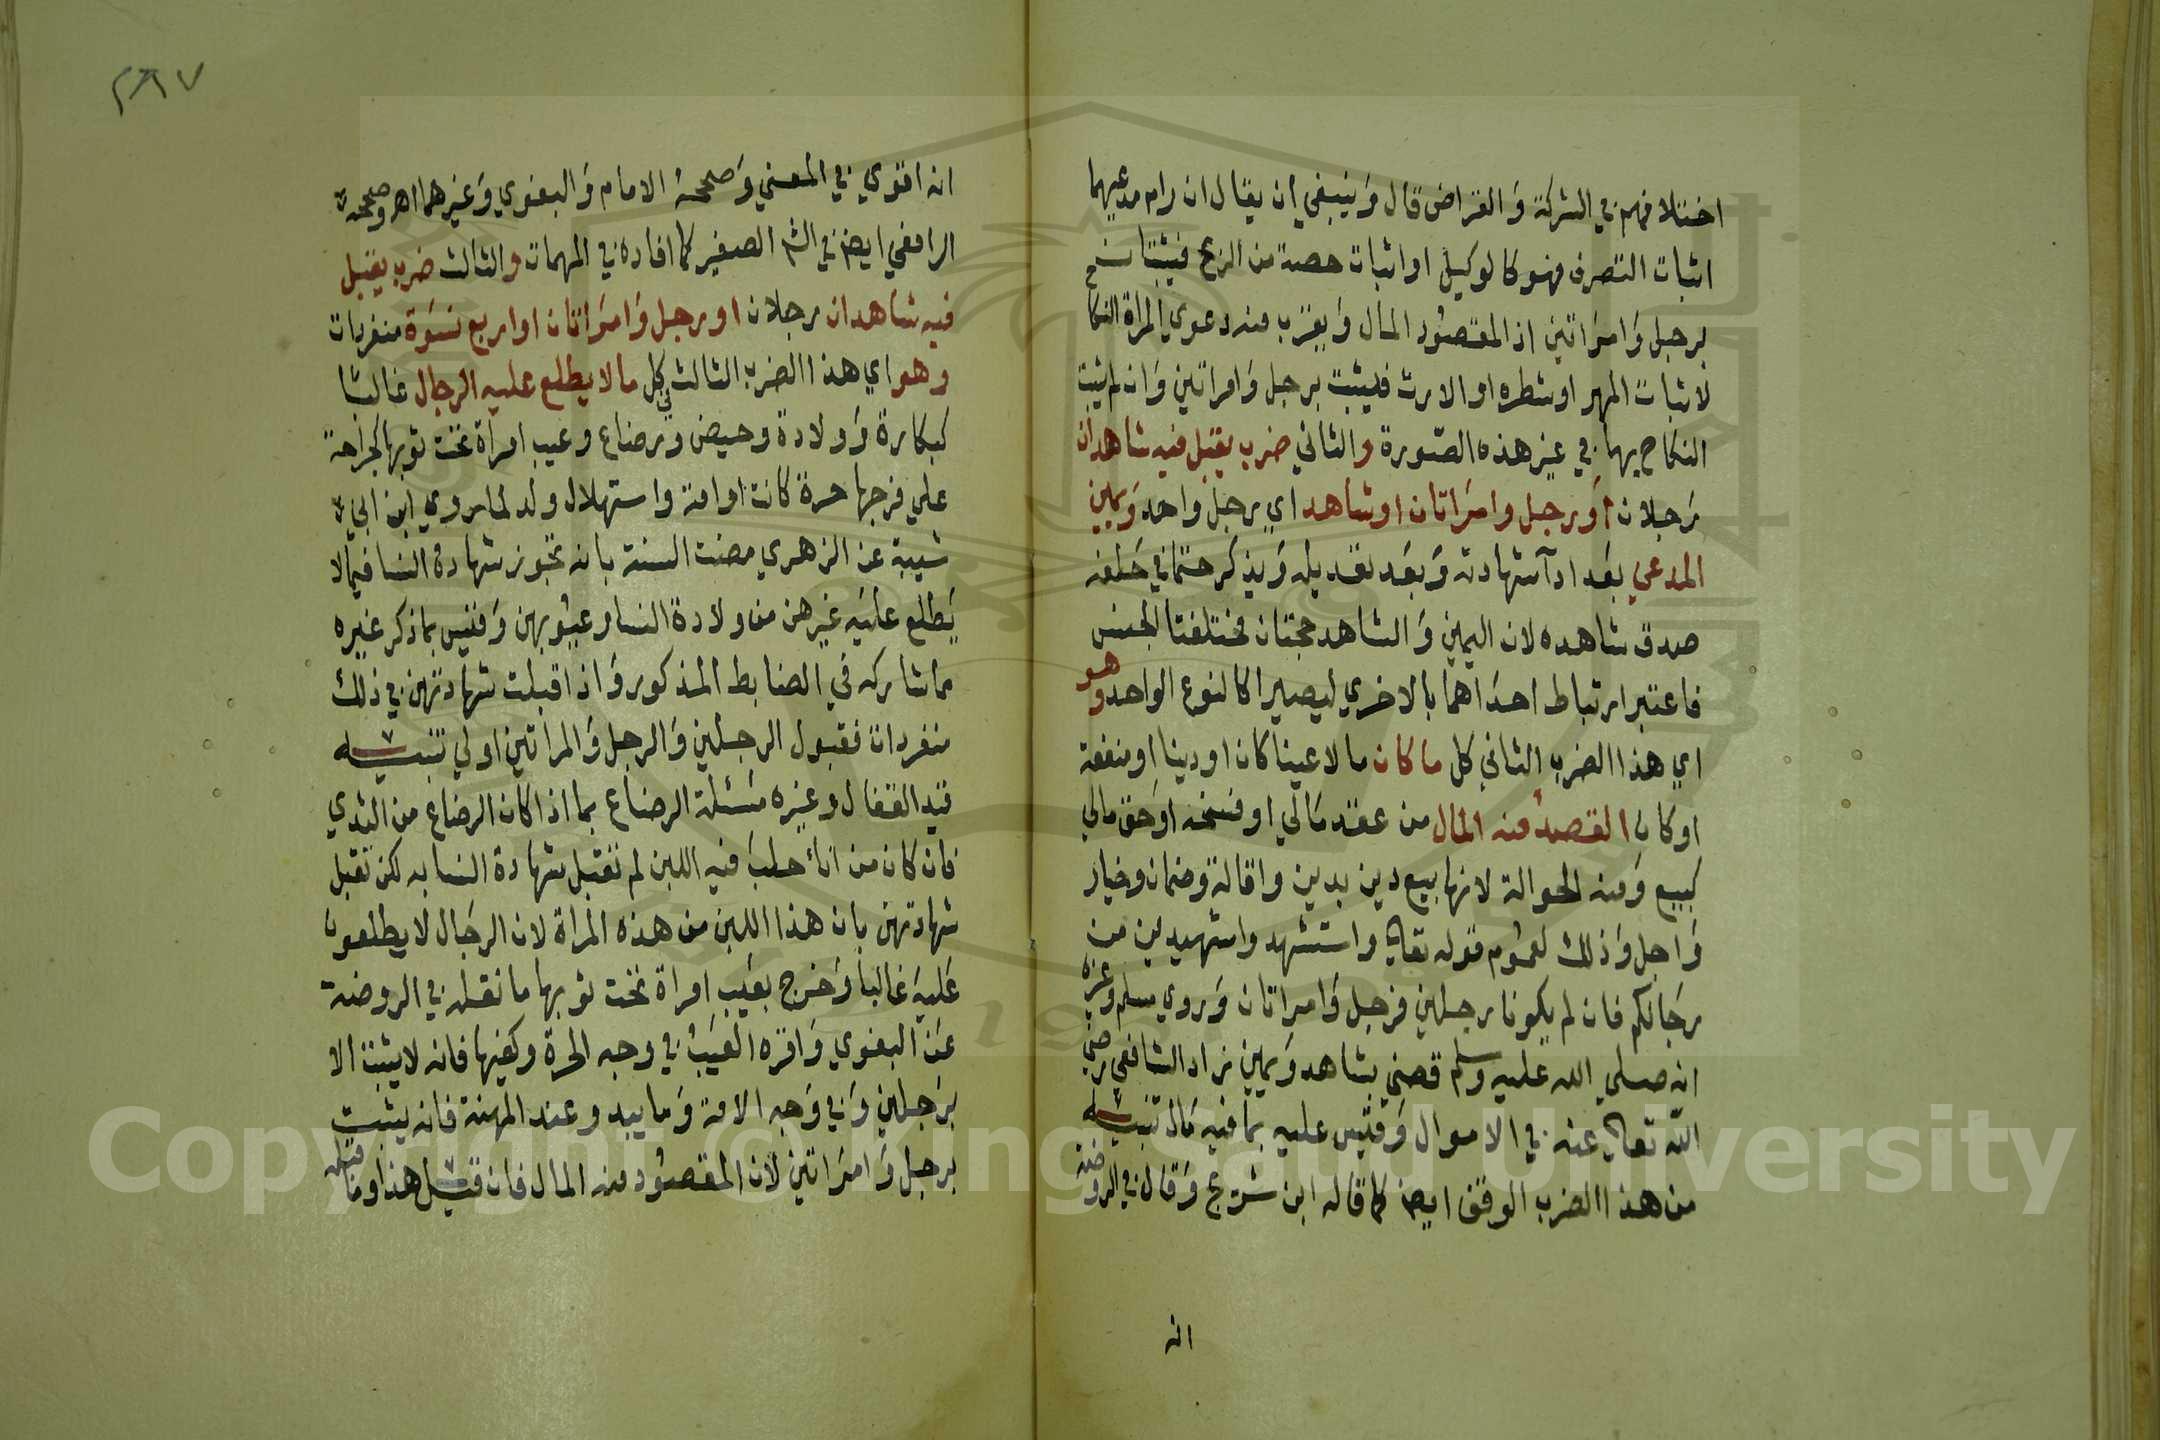 اختلافهم في الشركة والقراض قال وينبغي ان يقال ان رام مدعيهما
اثبات التصرف فهو كالوكيل او اثبات حصة من الربح فيثبتان
برجل وامراتين اذ المقصود المال ويقرب منه دعوي المراة النكاح
لاثبات المهر او شطره او الارث فيثبت برجل وامراتين وان لم يثبت
النكاح بهما في غير هذه الصورة والثاني ضرب يقبل فيه شاهدان
رجلان او رجل وامراتان او شاهد اي رجل واحد ويمين
المدعي بعد ادآ شهادته وبعد تعديله ويذكر حتما في حلفه
صدق شاهده لان اليمين والشاهد حجتان مختلفتا الجنس
فاعتبر ارتباط احداهما بالاخري ليصيرا كالنوع الواحد وهو
اي هذا الضرب الثاني كل ما كان مالا عينا كان او دينا او منفعة
او كان القصد منه المال من عقد مالي او فسخه او حق مالي
كبيع ومنه الحوالة لانها بيع دين بدين واقالة وضمان وخيار
واجل وذلك لعموم قوله تعالي واستشهدوا شهيدين من
رجالكم فان لم يكونا رجلين فرجل وامراتان وروي مسلم وغيره
انه صلي الله عليه وسلم قضي بشاهد ويمين زاد الشافعي رضي
الله تعالي عنه في الاموال وقيس عليه بما فيه مال تنبيه
من هذا الضرب الوقف ايض كما قاله ابن سريج وقال في الروضة
انه
٢٨٧
انه اقوي في المعني وصححه الامام والبغوي وغيرهما اهـ وصححه
الرافعي ايض في الشر الصغير كما افاده في المهمات والثالث ضرب يقبل
فيه شاهدان رجلان او رجل وامراتان او اربع نسوة منفردات
وهو اي هذا الضرب الثالث في كل ما لا يطلع عليه الرجال غالبا
كبكارة وولادة وحيض ورضاع وعيب امراة تحت ثوبها كجراحة
علي فرجها حرة كانت او امة واستهلال ولد لما روي ابن ابي
شيبة عن الزهري مضت السنة بانه تجوز شهادة النسا فيما لا
يطلع عليه غيرهن من ولادة النسا وعيوبهن وقيس بما ذكر غيره
مما شاركه في الضابط المذكور واذا قبلت شهادتهن في ذلك
منفردات فقبول الرجلين والرجل والمراتين اولي تنبيه
قيد القفال وغيره مسئلة الرضاع بما اذا كان الرضاع من الثدي
فان كان من اناء حلب فيه اللبن لم تقبل شهادة النسا به لكن تقبل
شهادتهن بان هذا اللبن من هذه المراة لان الرجال لا يطلعون
عليه غالبا وخرج بعيب امراة تحت ثوبها ما نقله في الروضة
عن البغوي واقره العيب في وجه الحرة وكفيها فانه لا يثبت الا
برجلين وفي وجه الامة وما يبدو عند المهنة فانه يثبت
برجل وامراتين لان المقصود منه المال فان قيل هذا وما قبله
Copyright © King Saud University